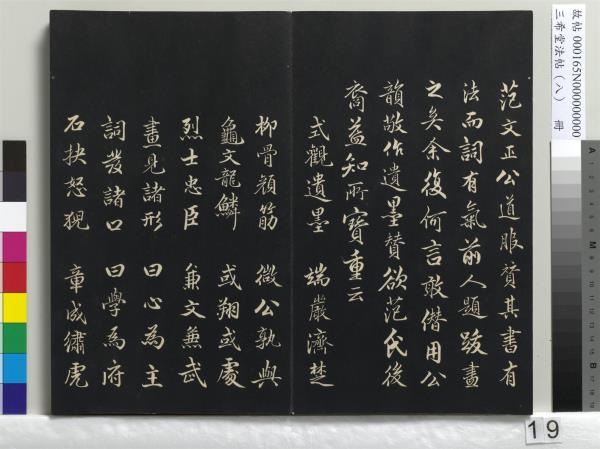 范文正公道服贊其書有
法而詞有氣前人題跋盡
之矣余復何言敢僭用公
韻敬作遺墨贊欲范氏後
裔益知所寶重云
式觀遺墨 端嚴濟楚
柳骨顏筋 微公孰與
龜文龍鱗 或翔或處
烈士忠臣 兼文兼武
畫見諸形 曰心為主
詞發諸口 曰學為府
石抉怒猊 章成繡虎
故帖 000165N000000000
三希堂法帖(八) 冊
19